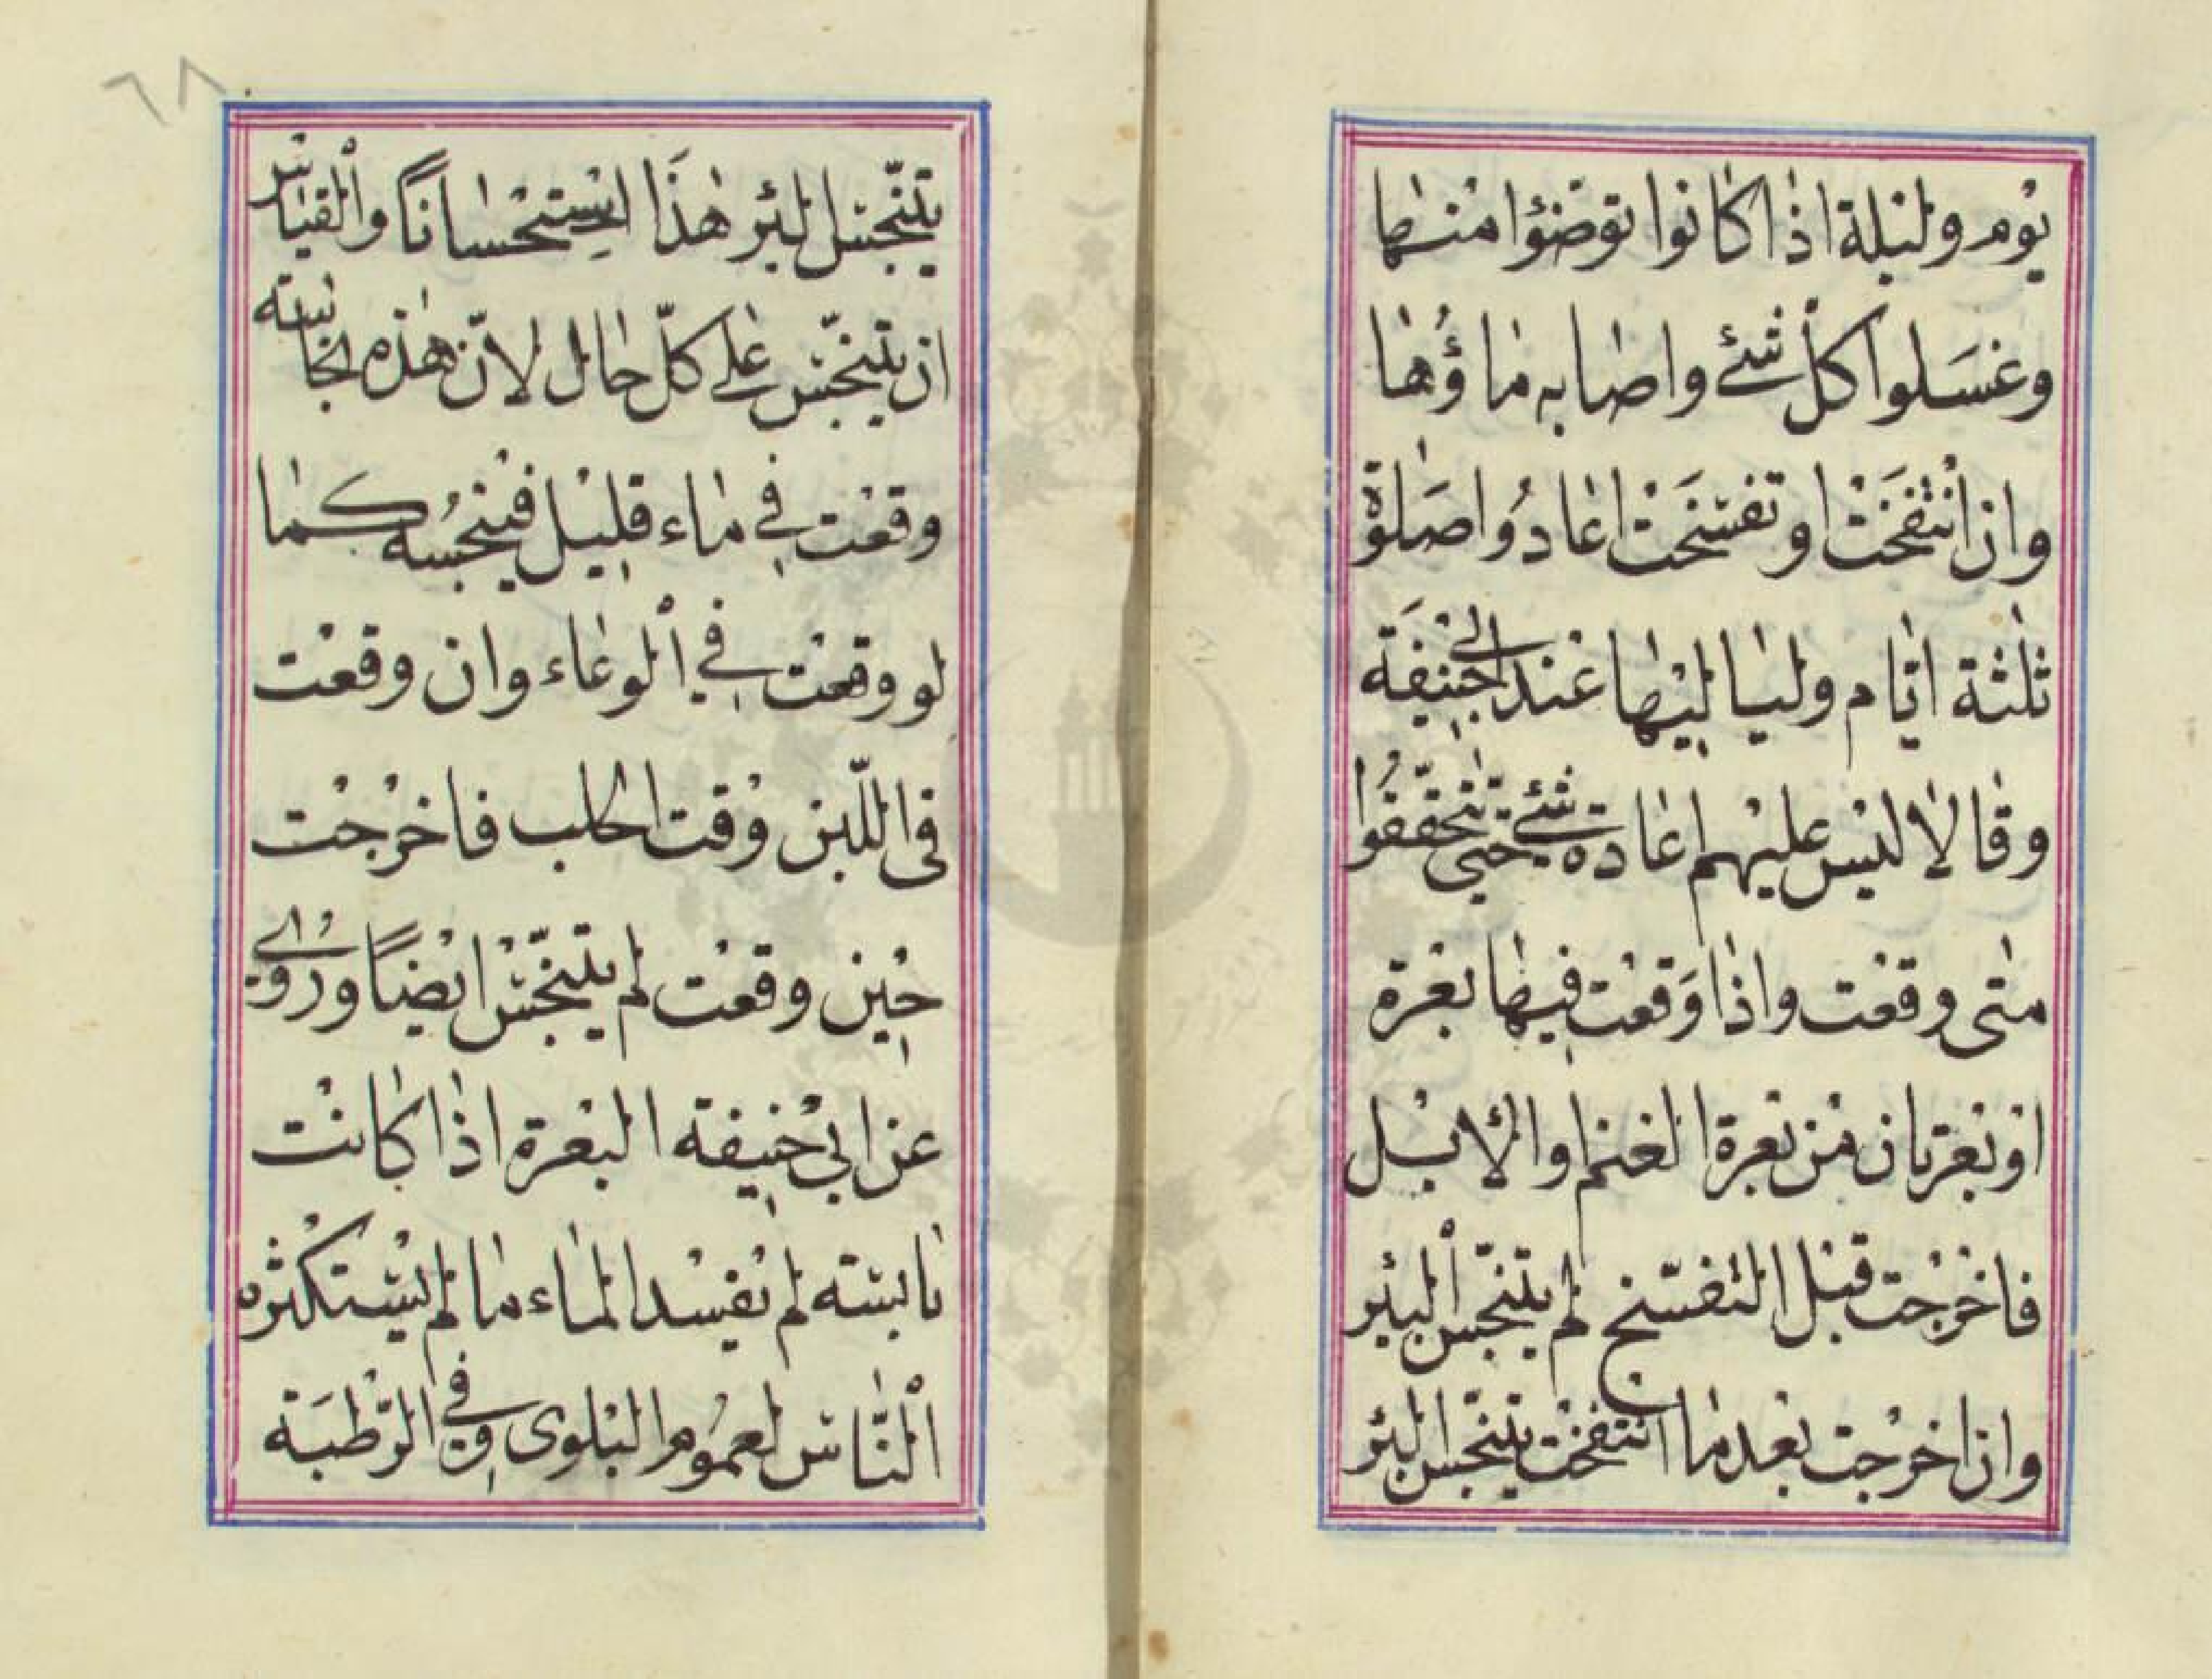 يوم وليلة اذا كانوا توضؤا منها
وغسلوا كل شئ واصابه ماؤها
وان انتفخت او تفسخت اعادوا صلوة
ثلثة ايام ولياليها عند ابي حنيفة
وقالا ليس عليهم اعادة شئ حتى تحققوا
متى وقعت واذا وقعت فيها بعرة
او بعرتان من بعرة الغنم او الابل
فاخرجت قبل التفسخ لم يتنجس البئر
وان اخرجت بعد ما انتفخت يتنجس البئر
٦٨
يتنجس البئر هذا استحسانا والقياس
ان يتنجس على كل حال لان هذه نجاسة
وقعت في ماء قليل فينجسه كما
لو وقعت في الوعاء وان وقعت
فى اللبن وقت الحلب فاخرجت
حين وقعت لم يتنجس ايضا وروي
عن ابي حنيفة البعرة اذا كانت
يابسة لم يفسد الماء ما لم يستكثره
الناس لعموم البلوى وفي الرطبة